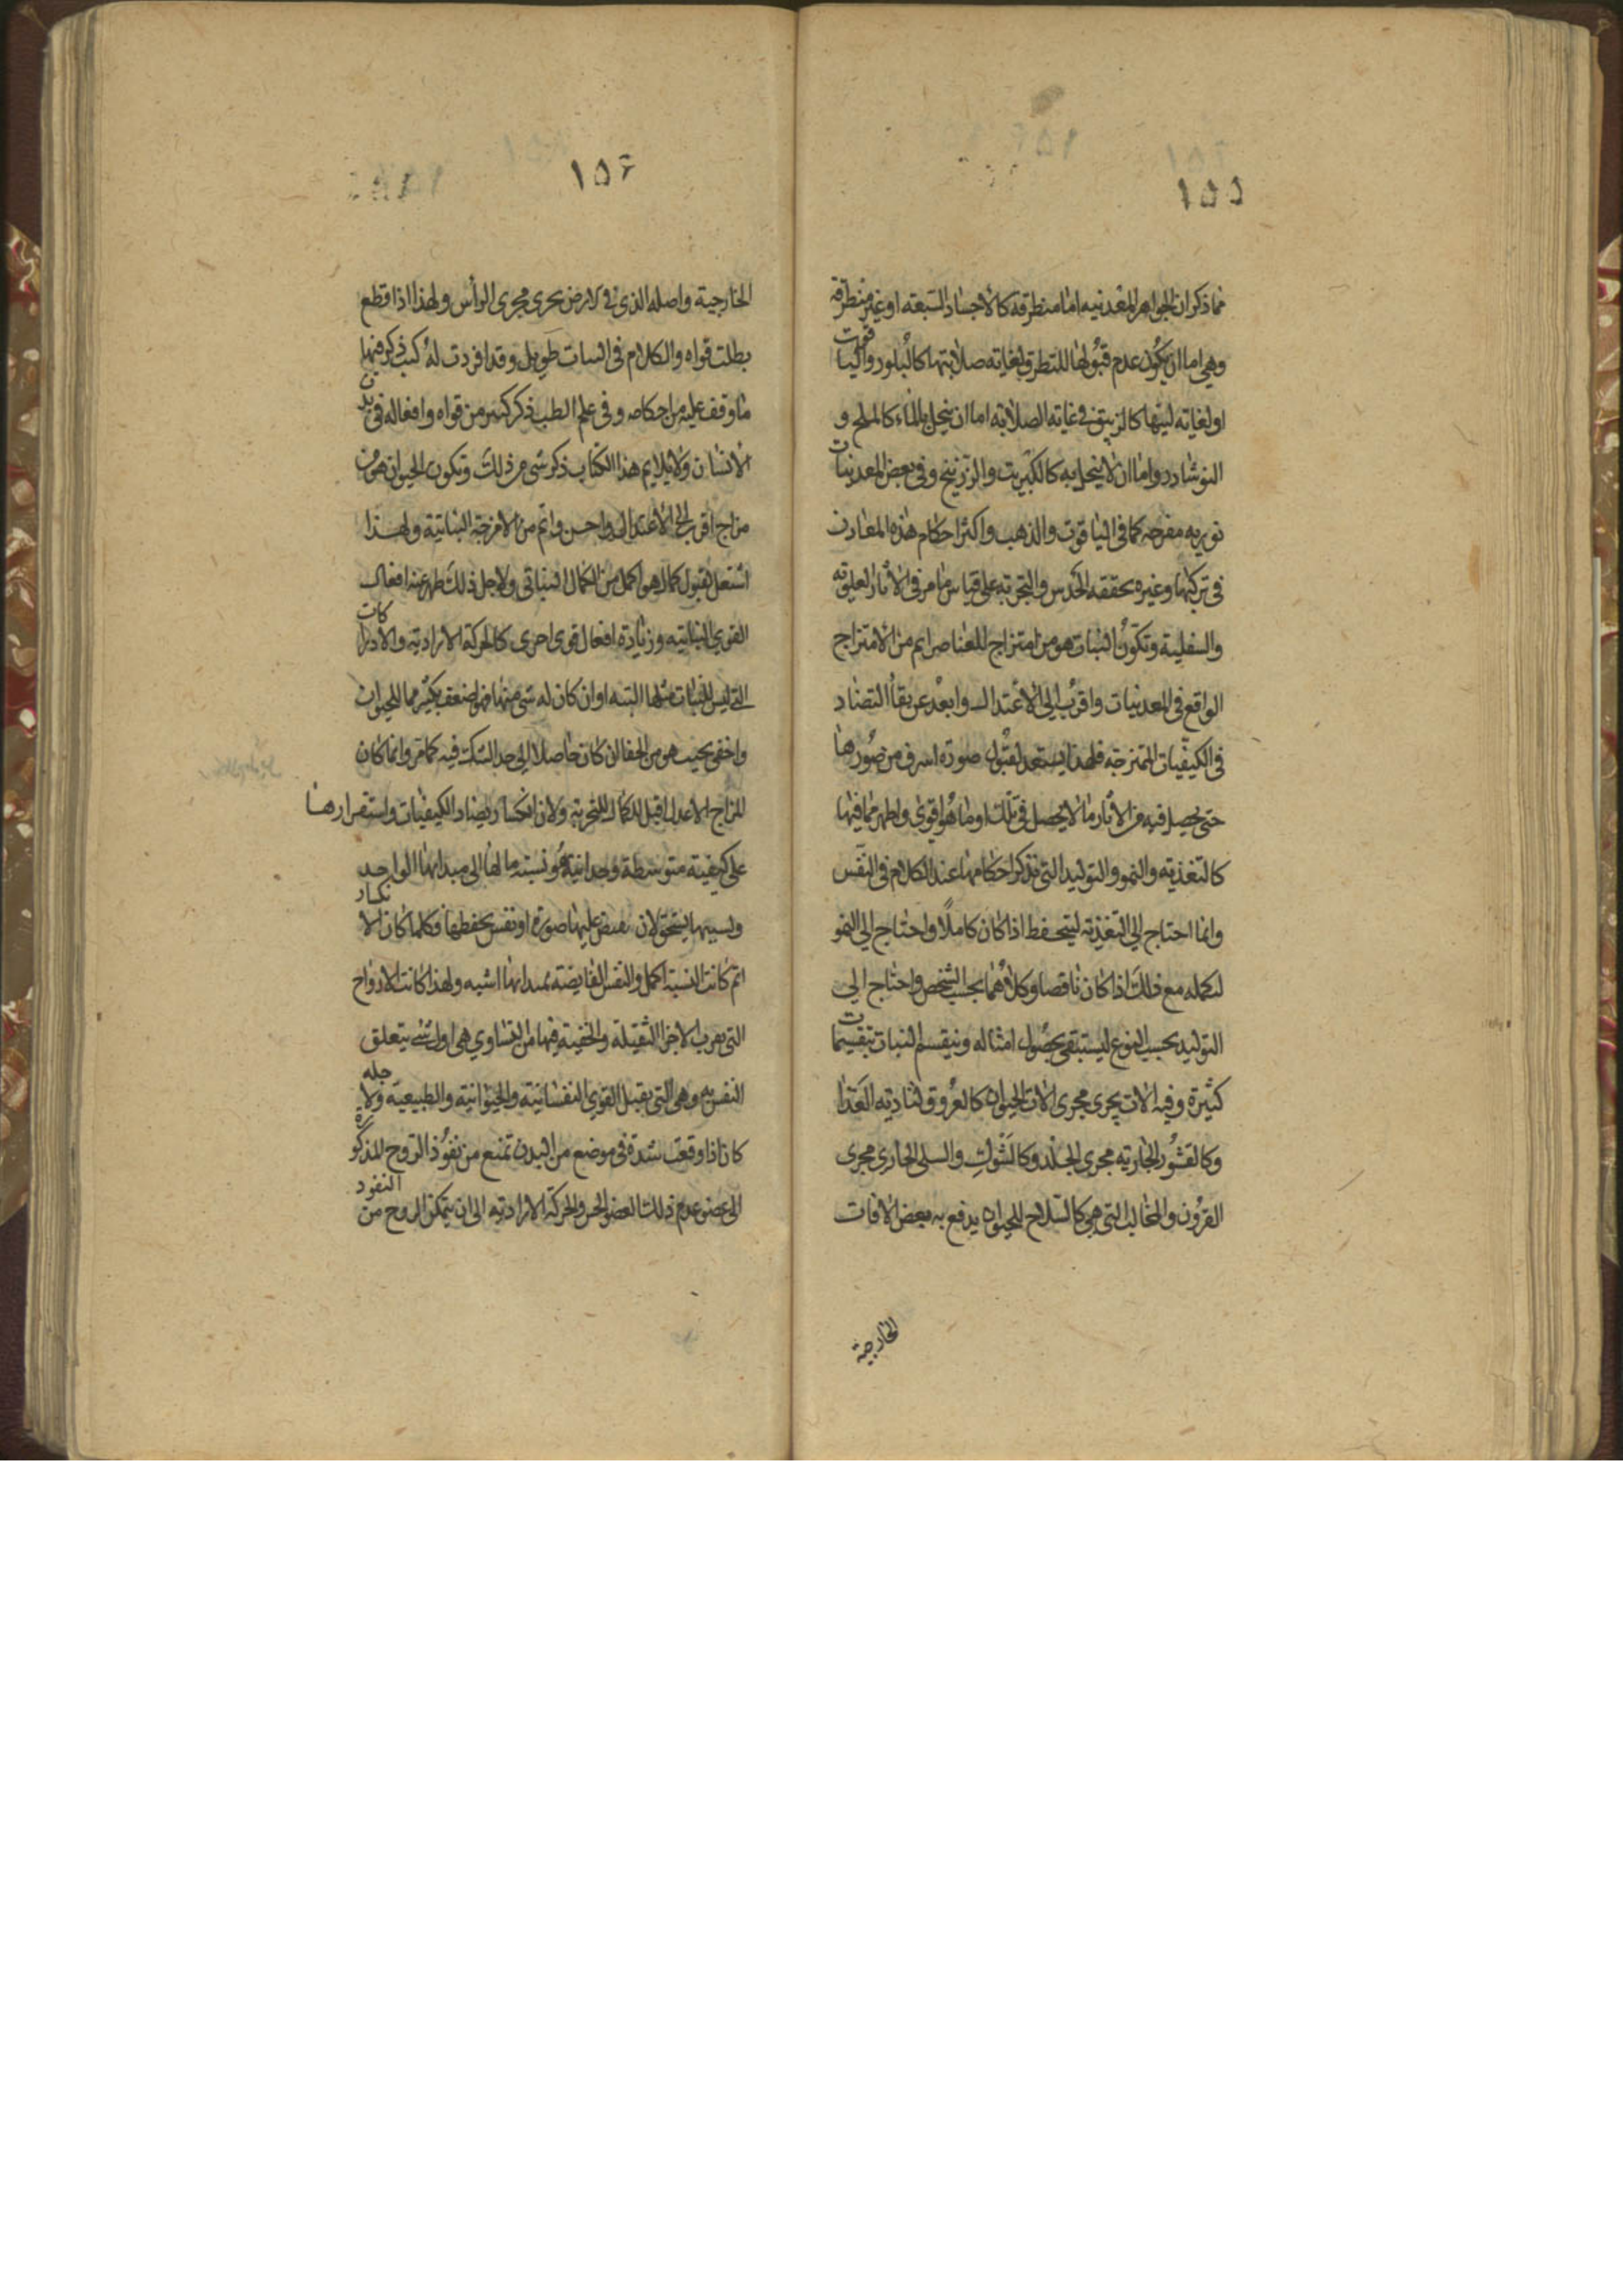 ١٥٥
مما ذكر ان الجواهر المعدنيه اما منطرقة كالاجساد السبعة او غير منطرقة
وهي اما ان يكون عدم قبولها للتطرق لغايته صلابتها كالبلور والياقوت
او لغايته لينها كالزيبق في غايته الصلابة اما ان ينحل بالماء كالملح و
النوشادر واما ان لا ينحل به كالكبريت والزرنيخ وفي بعض المعدنيات
نوريه مفرحه كما في الياقوت والذهب واكثر احكام هذه المعادن
في تركبها وغيره يحققه الحدس والتجربه على قياس ما مر في الاثار العلويه
والسفلية وتكون النبات هو من امتزاج للعناصر اتم من الامتزاج
الواقع في المعدنيات واقرب الى الاعتدال وابعد عن بقاء التضاد
في الكيفيات الممتزجه فلهذا يستعد لقبول صورة اشرف من صورها
حتى يحصل فيه من الاثار ما لا يحصل في تلك او ما هو اقوى واظهر مما فيها
كالتغذيه والنمو والتوليد التي نذكر احكامها عند الكلام في النفس
وانما احتاج الى التغذيه ليتحفظ اذا كان كاملا واحتاج الى النمو
لتكمله مع ذلك اذا كان ناقصا وكلاهما بحسب الشخص واحتاج الى
التوليد بحسب النوع ليستبقى بحصول امثاله وينقسم النبات بتقسيمات
كثيرة وفيه الات يجرى مجرى الات الحيوان كالعروق لتاديه الغذا
وكالقشور الجاريه مجرى الجلد وكالشوك والسلى الجارى مجرى
القرون والمخالب التي هي كالسلاح للحيوان يدفع به بعض الافات
الخارجية
١٥٦
الخارجية واصله الذي في الارض يجرى مجرى الراس ولهذا اذا قطع
بطلت قواه والكلام في النبات طويل وقد افردت له كتب ذكر فيها
ما وقف عليه من احكامه وفي علم الطب ذكر كثير من قواه وافعاله في بدن
الانسان ولا يلايم هذا الكتاب ذكر شى من ذلك وتكون الحيوان هو من
مزاج اقرب الى الاعتدال واحسن واتم من الامزجة النباتية ولهذا
استعد لقبول كمال هو اكمل من الكمال النباتى ولاجل ذلك ظهر عنه افعال
القوى النباتيه وزيادة افعال قوى اخرى كالحركة الاراديه والادراكات
التى ليس للنبات مثلها البته او ان كان له شى منها فهو اضعف بكثير مما للحيوان
واخفى بحيث هو من الخفا ان كان حاصلا الى حد الشك فيه كما مر وانما كان
المزاج الاعدل اقبل للكمال للتجربة ولان انكسار تضاد الكيفيات واستقرارها
على كيفية متوسطة وحدانية هو نسبة ما لها الى مبدائها الواحد
وبسببها يستحق لان يفيض عليها صورة او نفس يحفظها فكلما كان الانكسار
اتم كانت النسبة اكمل والنفس الفايضة بمبدائها اشبه ولهذا كانت الارواح
التي يقرب الاجزا الثقيلة والخفيفة فيها من التساوي هي اول شى يتعلق
النفس به وهى التى يقبل القوى النفسانية والحيوانية والطبيعية ولاجله
كان اذا وقعت سدة في موضع من البدن تمنع من نفوذ الروح المذكورة
الى عضو عدم ذلك العضو الحس والحركة الاراديه الى ان يتمكن الروح من النفوذ